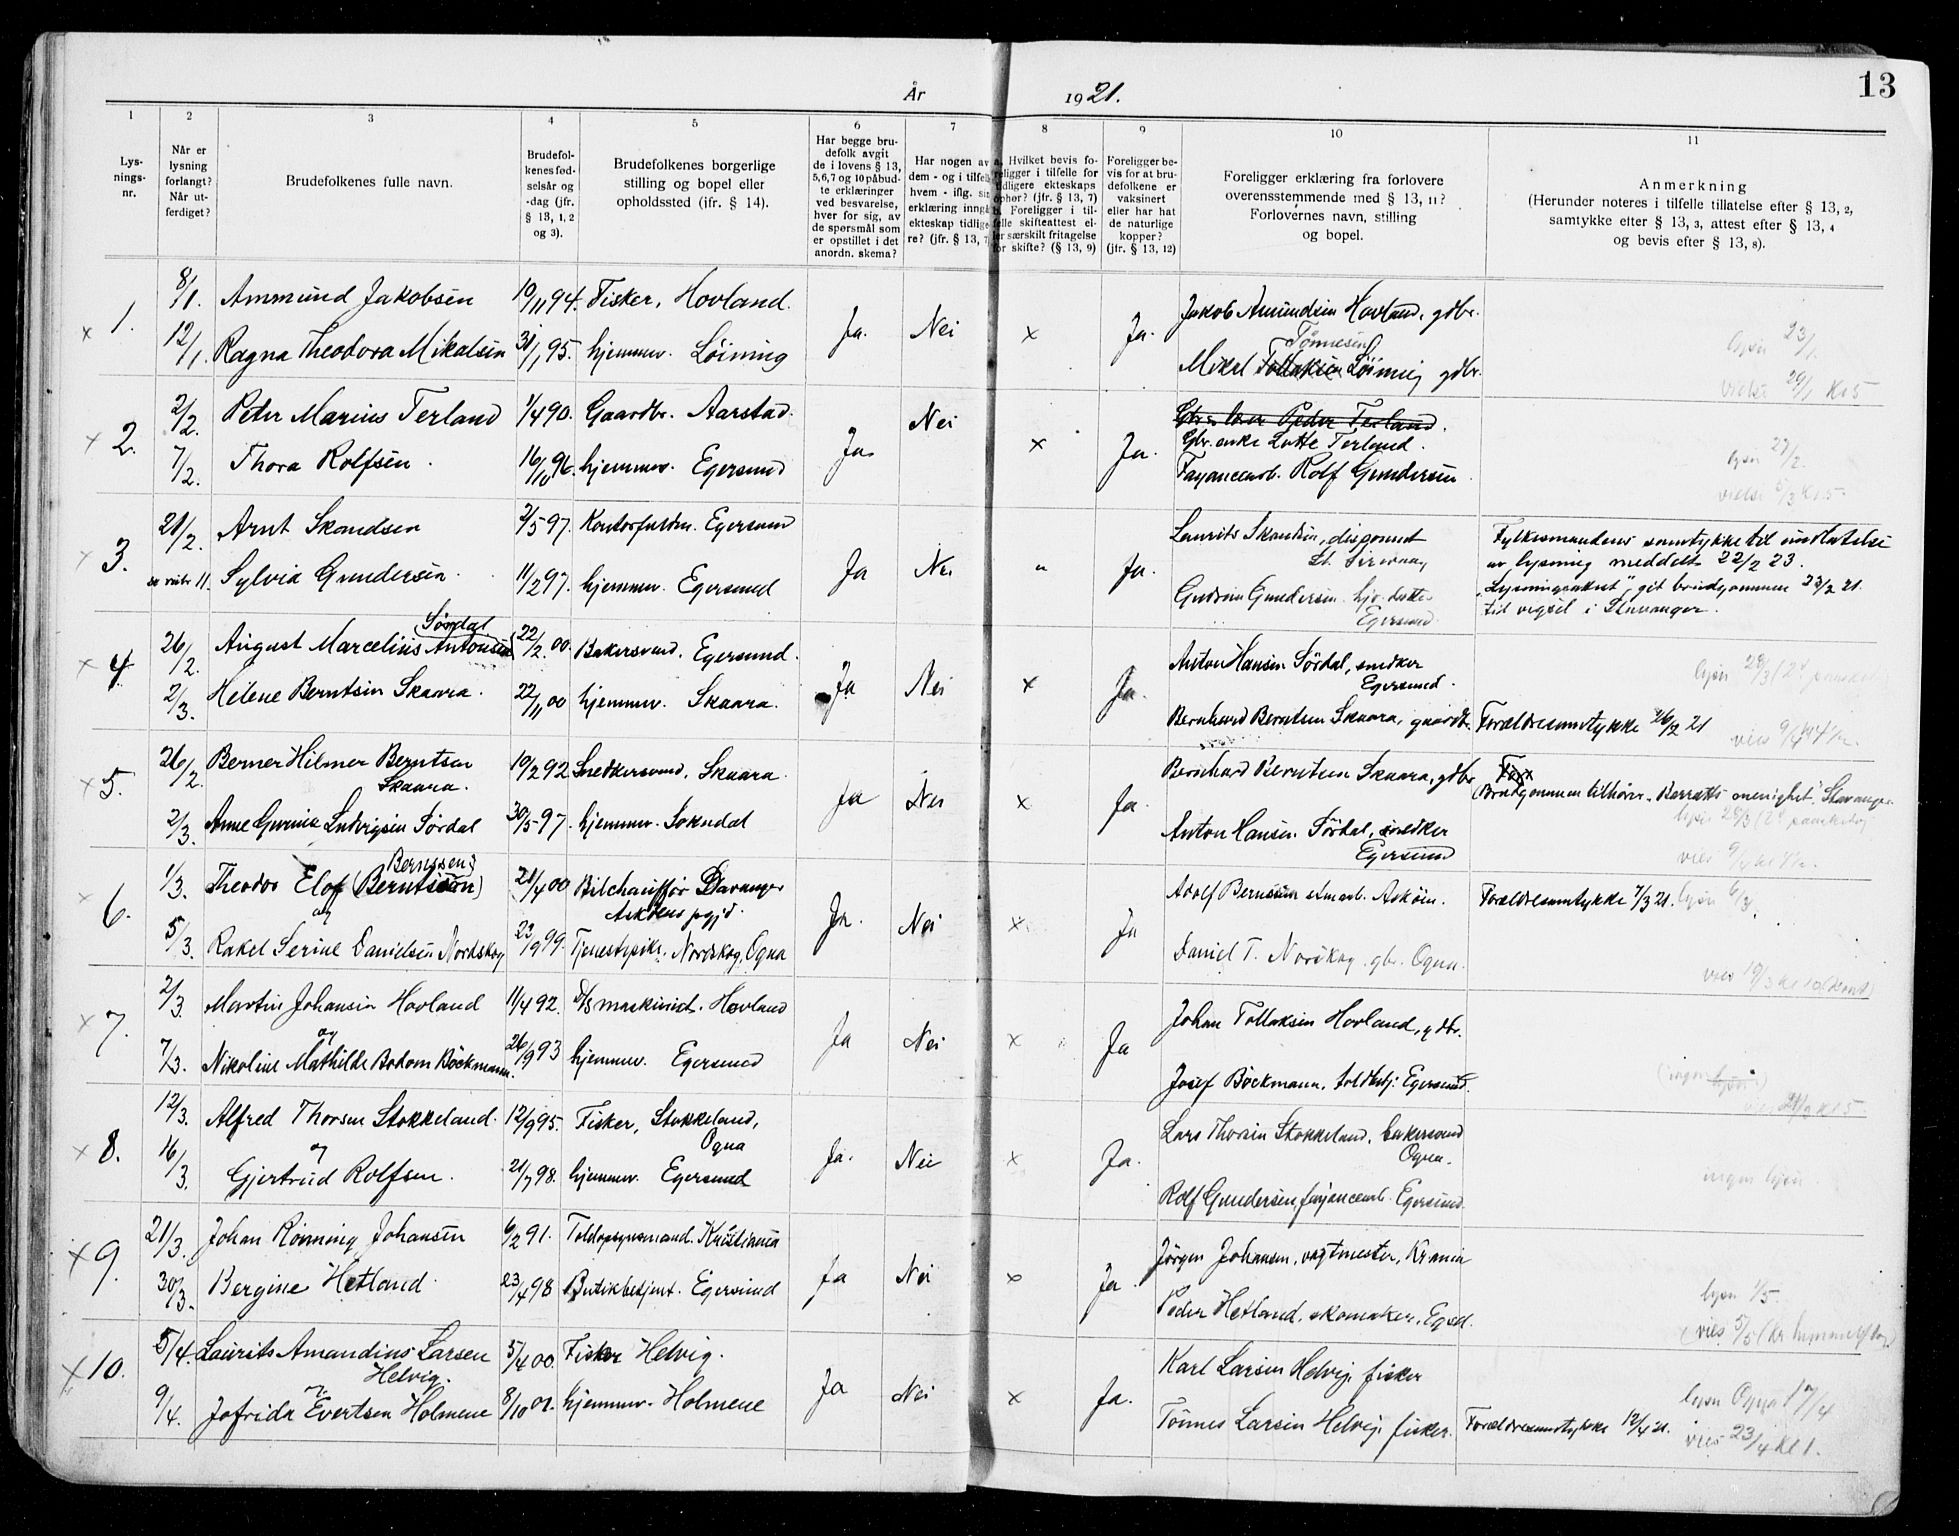 13
År 1921.
1 2 3 4 5 6 7 8 9 10 11
Lys-
nings-
nr.
Når er
lysning
forlangt?
Når ut-
ferdiget?
Brudefolkenes fulle navn.
Brudefol-
kenes fød-
selsår og
-dag (jfr.
§ 13, 1, 2
og 3).
Brudefolkenes borgerlige
stilling og bopel eller
opholdssted (ifr. § 14).
Har begge bru-
defolk avgit
de i lovens § 13,
5,6,7 og 10 påbud-
te erklæringer
ved besvarelse,
hver for sig, av
de spørsmål som
er opstillet i det
anordn. skema?
Har nogen av
dem - og i tilfelle
hvem - iflg. sin
erklæring inngå
ekteskap tidlige
re? (jfr. § 13, 7
a. Hvilket bevis fo-
religger i tilfelle for
tidligere ekteskaps
ophør? (jfr. § 13, 7)
b. Foreligger i til-
felle skifteattest el-
ler særskilt fritagelse
for skifte? (§ 13, 9)
Foreligger be-
vis for at bru-
defolkene er
vaksinert
eller har hat
de naturlige
kopper?
(jfr. § 13, 12)
Foreligger erklæring fra forlovere
overensstemmende med § 13, 11?
Forlovernes navn, stilling
og bopel.
Anmerkning
(Herunder noteres i tilfelle tillatelse efter § 13, 2,
samtykke efter § 13, 3, attest efter § 13, 4
og bevis efter § 13, 8).
x 1. 8/1. Ammund Jakobsen 10/11 94. Fisker, Hovland. Ja. Nei x Ja. Jakob Amundsen Hovland, gdbr.
12/1. Ragna Theodora Mikalsen 31/1 95. hjemmev. Löining
Tönnesen
Mikal Tollaksen Löining gdbr.
lysn 23/1.
vielse 29/1 kl 5
x 2. 2/2. Peder Marius Terland 1/4 90. Gaardbr. Aarstad. Ja. Nei x Ja. Gbr. Peder Terland.
Gbr. enke Lotte Terland.
7/2. Thora Rolfsen. 16/10 96. hjemmev. Egersund Fayancearb. Rolf Gundersen
lysn 27/2.
vielse 5/3 kl 5.
x 3. 21/2. Arnt Skandsen 2/5 97. Kontorfuldm. Egersund Ja Nei " Ja. Laurits Skandsen, disponent
St. Sirevaag
se rubr 11. Sylvia Gundersen. 11/2 97. hjemmev. Egersund Gudrun Gundersen hjv. datter
Egersund
Fylkesmandens samtykke til undlatelse
av lysning meddelt 22/2 23.
"Lysningsattest", git brudgommen 23/2 21.
til vigsel i Stavanger.
x 4. 26/2. August Marcelius Antonsen Sørdal 22/2. 00. Bakersvend. Egersund. Ja Nei x Ja. Anton Hansen Sørdal, snedker
Egersund.
2/3. Helene Berntsen Skaara. 22/11 00 hjemmev. Skaara. Bernhard Berntsen Skaara, gaardbr. Forældresamtykke 26/2 21
lysn 28/3 (2den paaskedag
vies 9/4 kl 4
x 5. 26/2. Berner Hilmer Berntsen
Skaara.
10/2 92 Snedkersvend, Skaara. Ja Nei x Ja. Bernhard Berntsen Skaara, gdbr
Brudgommen tilhører menighet, Stavanger
2/3. Anne Gurine Ludvigsen Sørdal 30/5 97. hjemmev. Sokndal Anton Hansen Sørdal, snedker
Egersund
lysn 28/3 (2den paaskedag
x 6. 1/3. Theodor Elof (Berntsson) Bernssen 21/4 00 Bilchauffør Davanger
Askøens pgjd.
Ja. Nei x Ja Adolf Bernssen Askøen. Forældresamtykke 7/3 21. lysn 6/3.
og
5/3. Rakel Serine Danielsen Nordskog 23/9 99. Tjenestepike. Nordskog, Ogna Daniel T. Norskog gbr. Ogna.
vies 19/3 kl 10
x 7. 2/3. Martin Johansen Hovland 11/4 92. D/S maskinist. Hovland Ja Nei x Ja Johan Tollaksen Hovland, gdbr.
og
7/3. Nikoline Mathilde Bodom Böckmann. 26/9 93 hjemmev. Egersund Josef Böckmann, toldbetj. Egersund.
(ingen lysn)
x 8. 12/3. Alfred Thorsen Stokkeland. 12/9 95. Fisker, Stokkeland,
Ogna
Ja. Nei x Ja. Lars Thorsen Stokkeland, bakersvend
Ogna.
og
16/3. Gjertrud Rolfsen. 21/7 98. hjemmev. Egersund Rolf Gundersen, fayancearb. Egersund.
ingen lysn.
x 9. 21/3. Johan Rönning Johansen 6/2 91. Toldopsynsmand. Kristiania Ja Nei x Ja Jørgen Johansen, vagtmester, Kr.ania
30/3. Bergine Hetland. 23/4 98 Butikbetjent. Egersund Peder Hetland, skomaker, Egsd.
lysn 1/5.
vies 5/5 (Kr. himmelfdag)
x 10. 5/4. Laurits Amandius Larsen
Helvig.
5/4 00. Fisker Helvig. Ja Nei x Ja. Karl Larsen Helvig fisker
9/4. Jofrida Evertsen Holmene 8/10 01. hjemmev. Holmene Tönnes Larsen Helvig fisker. Forældresamtykke 12/4 21.
lysn Ogna 17/4
vies 23/4 kl 1.